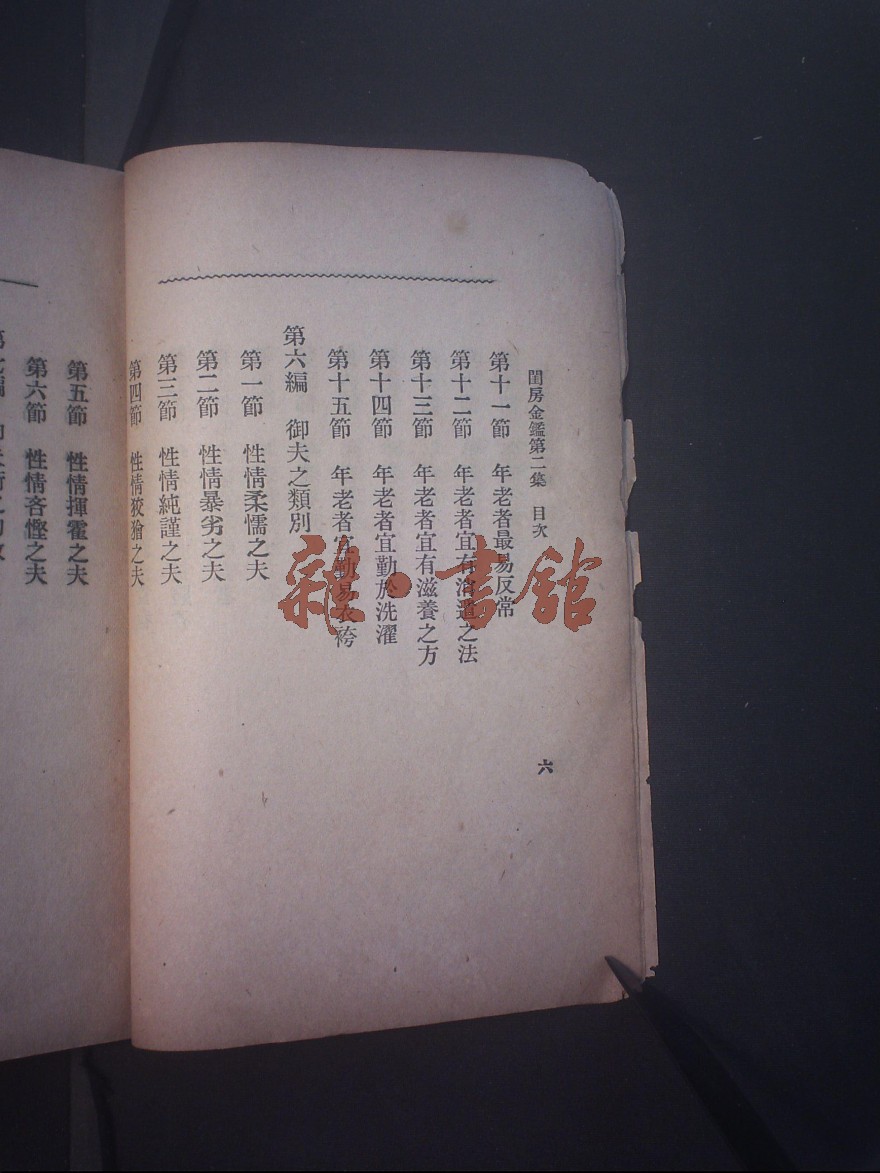 閨房金鑑第二集　目次
六
第十一節　年老者最易反常
第十二節　年老者宜有消遣之法
第十三節　年老者宜有滋養之方
第十四節　年老者宜勤於洗濯
第十五節　年老者宜勤易衣袴
第六編　御夫之類別
第一節　性情柔懦之夫
第二節　性情暴劣之夫
第三節　性情純謹之夫
第四節　性情狡獪之夫
第五節　性情揮霍之夫
第六節　性情吝慳之夫
雜·書館